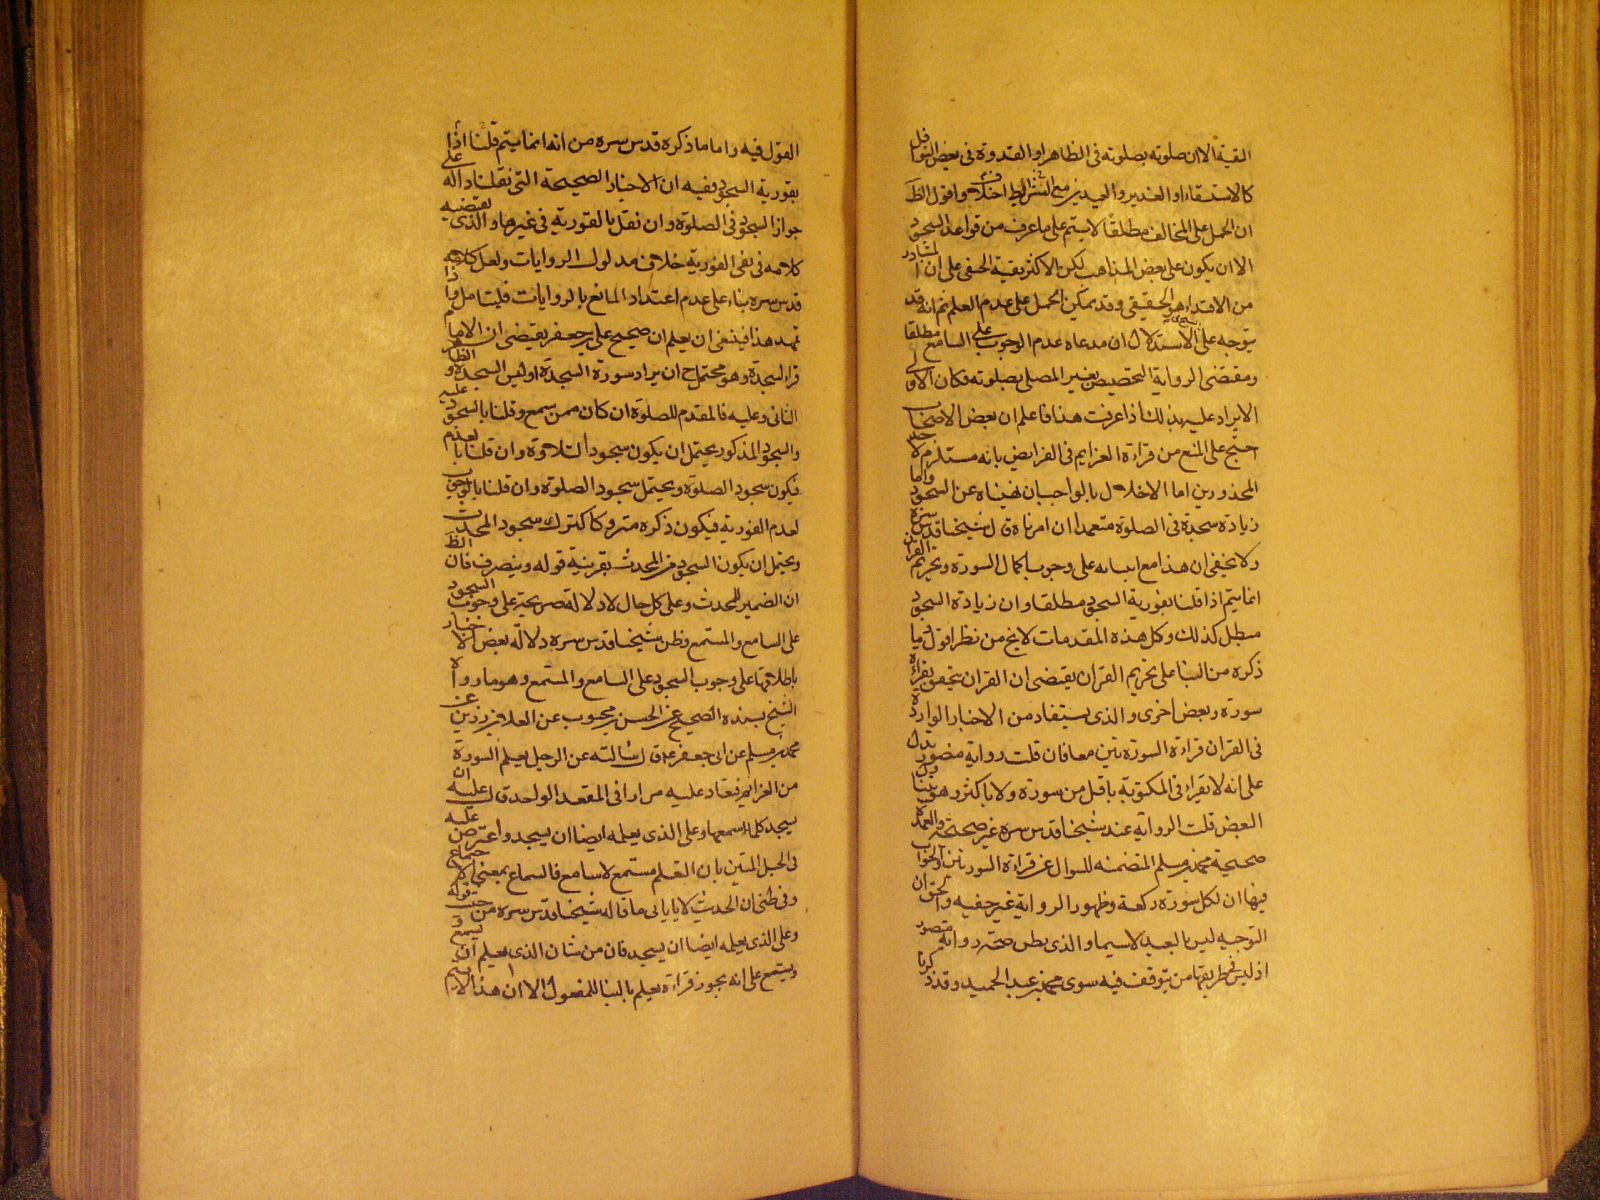 التقية الا ان صلوته بصلوته فى الظاهر او القدوة فى بعض النوافل
كالاستسقاء او الغدير والعيدين مع الشرايط اختلا واقول الظ
ان الحمل على المخالف مطلقا لا يتم على ما عرف من قواعد السجود
الا ان يكون على بعض المذاهب لكن الاكثر بقية على ان المتبادر
من الاقتداء هو الحقيقى وقد يمكن الحمل على عدم العلم ثم انه قد
يتوجه على الاستدلال ان مدعاه عدم الوجوب على السامع مطلقا
ومقتضى الرواية التخصيص بغير المصلى بصلوته فكان الاولى
الايراد عليه بذلك اذا عرفت هذا فاعلم ان بعض الاصحاب
احتج على المنع من قراءة العزايم فى الفرايض بانه مستلزم لاحد
المحذورين اما الاخلال بالواجب ان نهيناه عن السجود واما
زيادة سجدة فى الصلوة متعمدا ان امرناه ق ل شيخنا قدس سره
ولا يخفى ان هذا مع ابتنائه على وجوب اكمال السورة وتحريم القران
انما يتم اذا قلنا بفورية السجود مطلقا وان زيادة السجود
مبطل كذلك وكل هذه المقدمات لا يخ من نظر اقول وما
ذكره من البنا على تحريم القران يقتضى ان القران يتحقق بقراءة
سورة وبعض اخرى والذى يستفاد من الاخبار الواردة
فى القران قراءة السورتين معا فان قلت رواية منصور تدل
على انه لا يقراء فى المكتوبة باقل من سورة ولا باكثر وهو يتناول
البعض قلت الرواية عند شيخنا قدس سره غير صحيحة والعمدة
صحيحة محمد بن مسلم المتضمنه للسوال عن قراءة السورتين والجواب
فيها ان لكل سورة ركعة وظهور الرواية غير خفيه والحق ان
التوجيه ليس بالبعيد لاسيما والذى يظن صحة رواية منصور
اذ ليس فى طريقها من يتوقف فيه سوى محمد بن عبد الحميد وقد ذكرنا
القول فيه واما ما ذكره قدس سره من انه انما يتم اذا قلنا
بفورية السجود ففيه ان الاخبار الصحيحة التى نقلنا دالة على
جواز السجود فى الصلوة وان نقل بالفورية فى غيرها والذى يقتضيه
كلامه فى نفى الفورية خلاف مدلول الروايات ولعل كلامه
قدس سره بناء على عدم اعتداد المانع بالروايات فليتامل واذا
تمهد هذا فينبغى ان يعلم ان صحيح على بن جعفر يقتضى ان الامام
قراء السجدة وهو محتمل ح ان يراد سورة السجدة او نفس السجدة والظاهر
الثانى وعليه فالمقدم للصلوة ان كان ممن سمع وقلنا بالسجود عليه
والسجود المذكور يحتمل ان يكون سجود التلاوة وان قلنا بعدم
فيكون سجود الصلوة ويحتمل سجود الصلوة وان قلنا بالوجوب
لعدم الفورية فيكون ذكره متروكا كترك سجود المحدث
ويحتمل ان يكون السجود من المحدث بقرينة قوله وينصرف فان الظ
ان الضمير للمحدث وعلى كل حال لا دلالة صريحة على وجوب السجود
على السامع والمستمع وظن شيخنا قدس سره دلالة بعض الاخبار
باطلاقها على وجوب السجود على السامع والمستمع وهو ما رواه
الشيخ بسنده الصحيح عن الحسن بن محبوب عن العلا بن رزين عن
محمد بن مسلم عن ابى جعفر ع ق ل سالته عن الرجل يعلم السورة
من العزايم فتعاد عليه مرارا فى المقعد الواحد ق ل عليه ان
يسجد كلما سمعها وعلى الذى يعلمه ايضا ان يسجد واعترض عليه
فى الحبل المتين بان التعلم مستمع لا سامع فالسماع بمعنى الاستماع
وفى ظنى ان الحديث لا يابى ما قاله شيخنا قدس سره من حيث قوله
وعلى الذى يعلمه ايضا ان يسجد فان من شان الذى يعلم ان يسمع
ويستمع على انه يجوز قراءة يعلم بالبنا للمفعول الا ان هذا